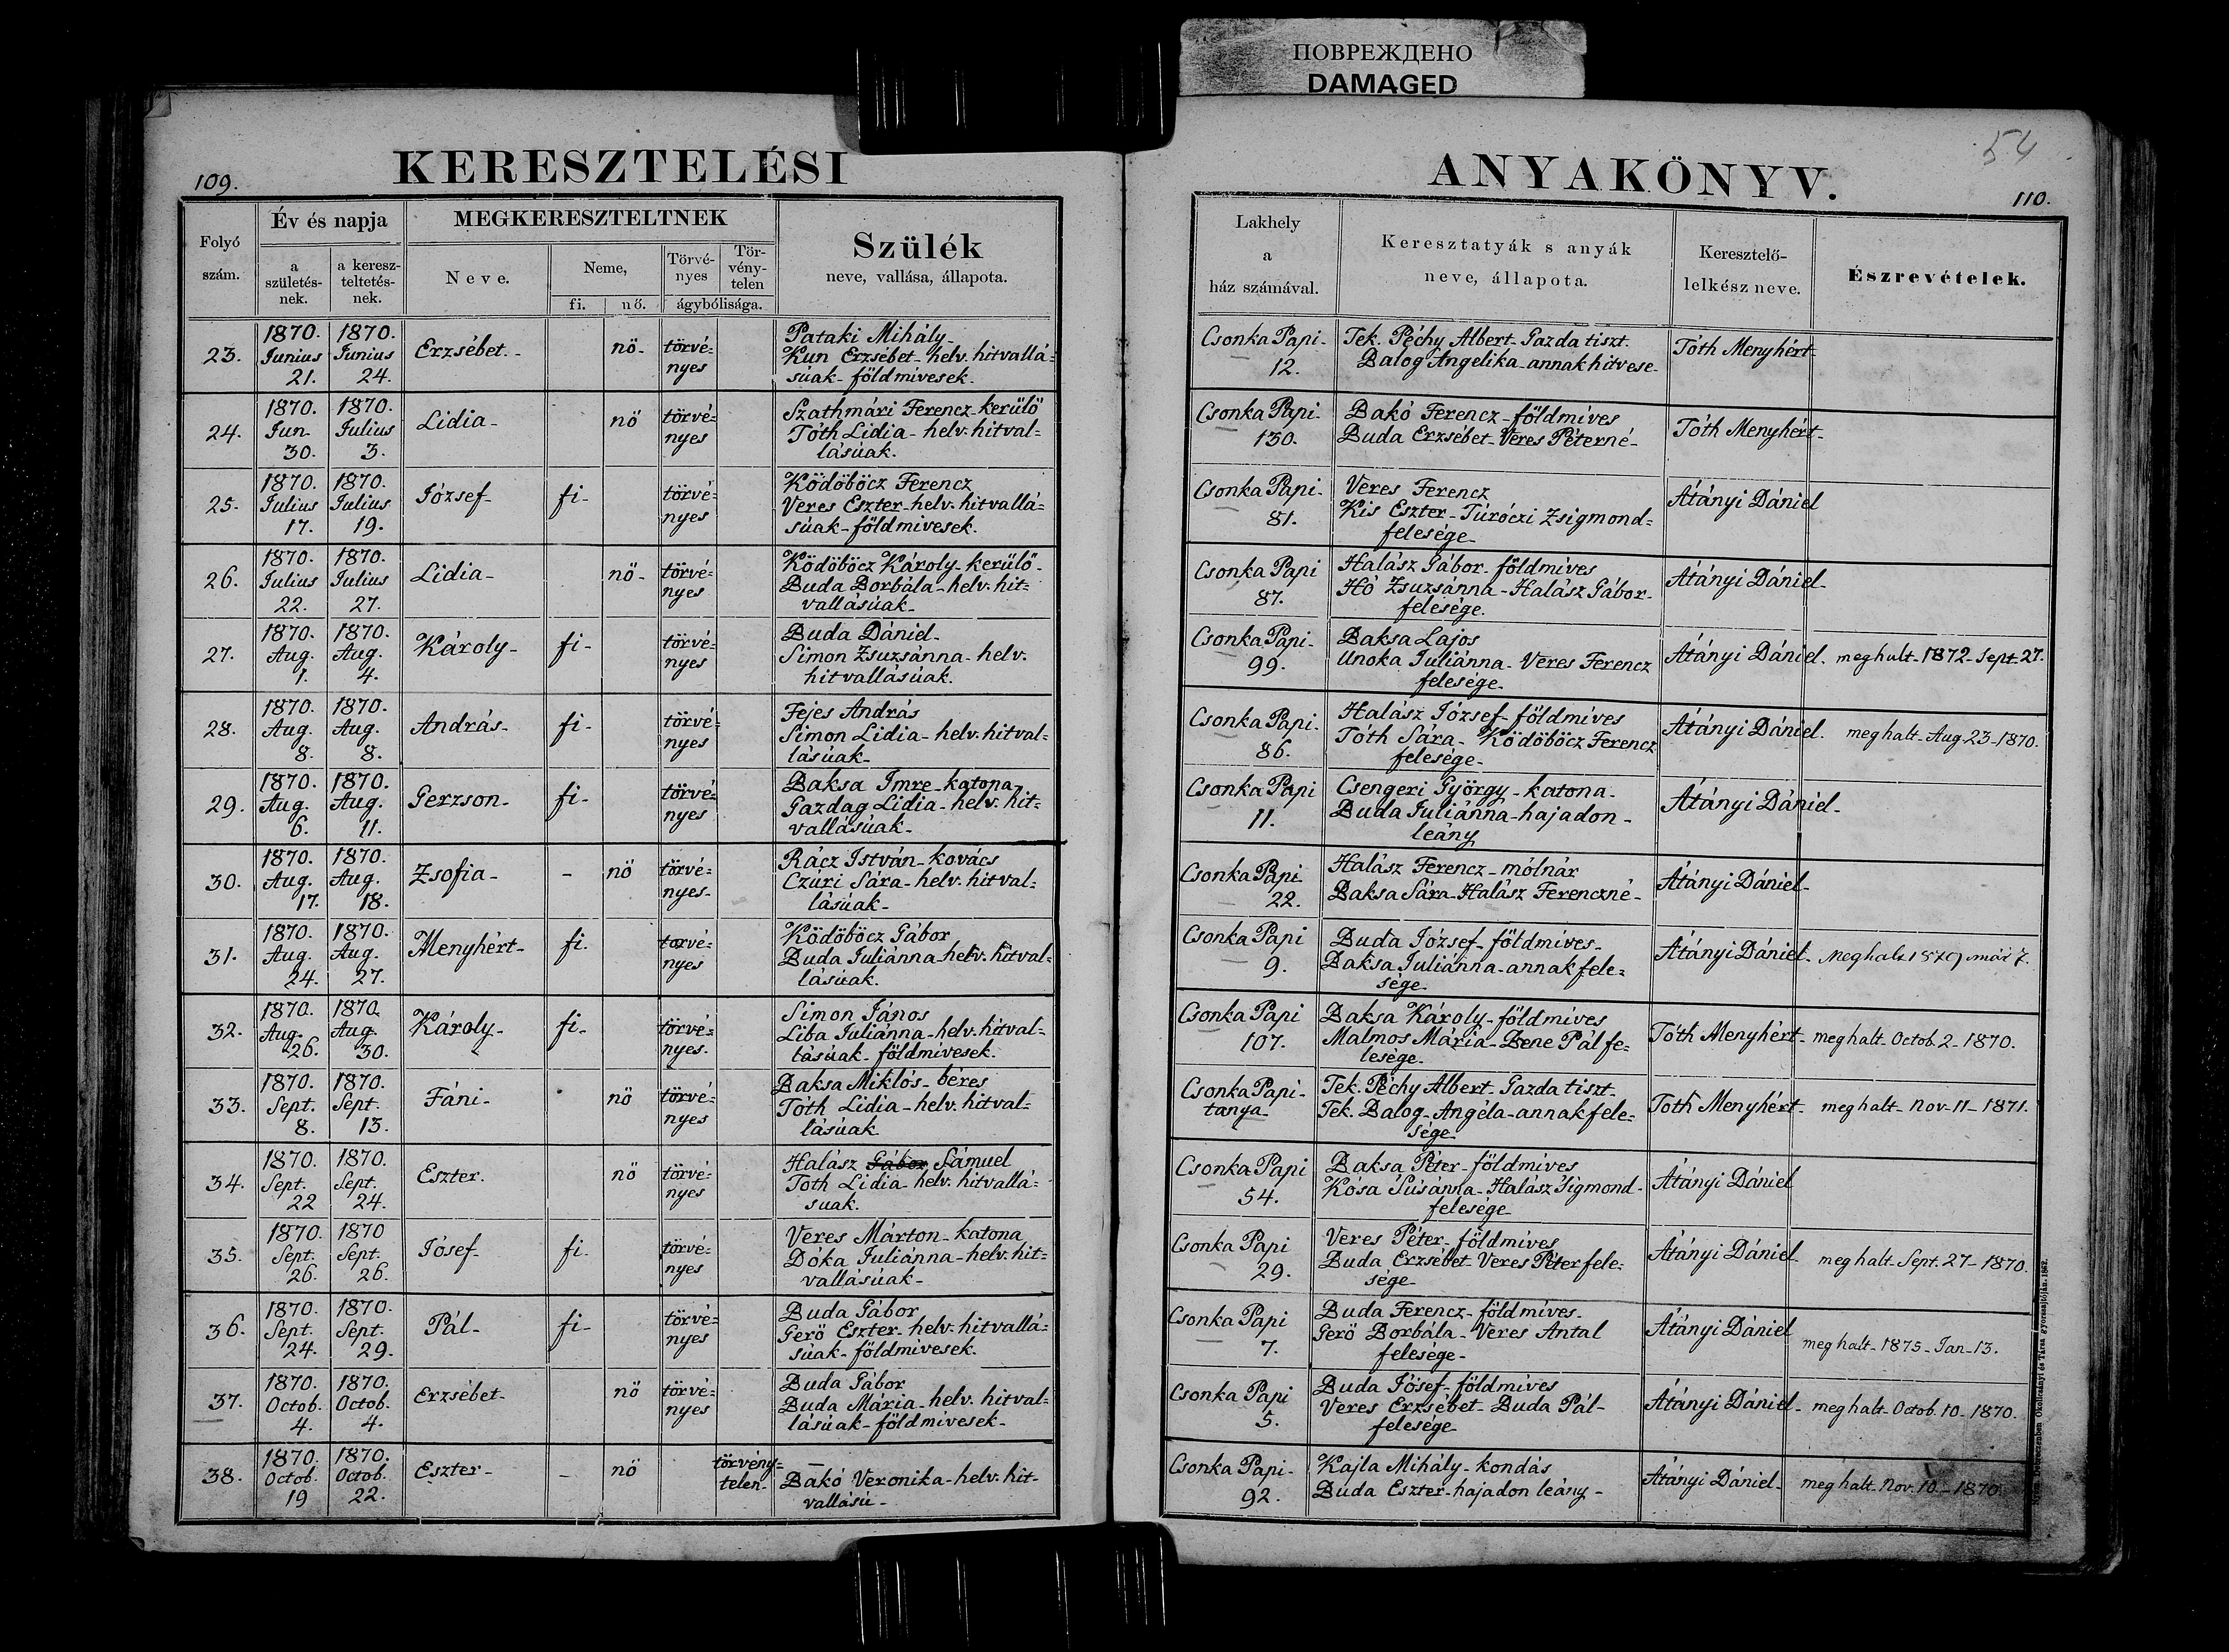 ПОВРЕЖДЕНО
DAMAGED
109.
KERESZTELÉSI
Folyó szám.
Év és napja
a születés-nek.
a keresz-teltetés-nek.
MEGKERESZTELTNEK
Neve.
Neme,
fi.
nő.
Törvé-nyes
Tör-vény-telen
ágybólisága.
Szülék
neve, vallása, állapota.
23. 1870. Junius 21. 1870. Junius 24. Erzsébet.- nö- törvé=nyes
Pataki Mihály-
Kun Erzsébet- helv. hitvallá=
súak- földmívesek.
24. 1870. Jun. 30. 1870. Julius 3. Lidia- nö törvé=nyes
Szathmári Ferencz- kerülö
Tóth Lidia- helv. hitval=
lásúak.
25. 1870. Julius 17. 1870. Julius 19. József- fi- törvé=nyes
Ködöböcz Ferencz
Veres Eszter- helv. hitvallá=
súak- földmivesek.
26. 1870. Julius 22. 1870. Julius 27. Lidia- nö- törvé=nyes
Ködöböcz Károly- kerülö-
Buda Borbála- helv. hit=
vallásúak-
27. 1870. Aug. 1. 1870. Aug. 4. Károly- fi- törvé=nyes
Buda Dániel-
Simon Zsuzsánna- helv.
hitvallásúak.
28. 1870. Aug. 8. 1870. Aug. 8. András- fi- törvé=nyes
Fejes András
Simon Lidia- helv. hitval=
lásúak-
29. 1870. Aug. 6. 1870. Aug. 11. Gerzson- fi- törvé=nyes
Baksa Imre- katona
Gazdag Lidia- helv. hit=
vallásúak-
30. 1870. Aug. 17. 1870. Aug. 18. Zsofia- - nö törvé=nyes-
Rácz István- kovács
Czúri Sára- helv. hitval=
lásúak-
31. 1870. Aug. 24. 1870. Aug. 27. Menyhért- fi. törvé=nyes
Ködöböcz Gábor
Buda Juliánna- helv. hitval=
lásúak.
32. 1870. Aug. 26. 1870. Aug. 30. Károly- fi- törvé=nyes.
Simon János
Liba Juliánna- helv. hitval=
lásúak- földmívesek.
33. 1870. Sept. 8. 1870. Sept. 13. Fáni- nö törvé=nyes
Baksa Miklós- béres
Tóth Lidia- helv. hitval=
lásúak
34. 1870. Sept. 22 1870. Sept. 24. Eszter. nö törvé=nyes
Halász Gábor Sámuel
Tóth Lidia- helv. hitvallá=
suak.
35. 1870. Sept. 26. 1870 Sept. 26. Jósef- fi- törvé=nyes
Veres Márton- katona
Dóka Juliánna- helv. hit=
vallásúak-
36. 1870. Sept. 24. 1870. Sept. 29. Pál- fi- törvé=nyes
Buda Gábor
Gerö Eszter- helv. hitvallá=
súak- földmívesek.
37. 1870. Octob. 4. 1870. Octob. 4. Erzsébet- nö törvé=nyes
Buda Gábor
Buda Mária- helv. hitval=
lásúak- földmívesek-
38. 1870. Octob. 19 1870. Octob. 22. Eszter- - nö törvény=telen-
—
Bakó Veronika- helv. hit-
vallású-
54
ANYAKÖNYV.
110.
Lakhely
a
ház számával.
Keresztatyák s anyák
neve, állapota.
Keresztelő-
lelkész neve.
Észrevételek.
Csonka Papi- 12.
Tek. Péchy Albert- Gazda tiszt.
Balog Angelika- annak hitvese-
Tóth Menyhért-
Csonka Papi- 130.
Bakó Ferencz- földmíves
Buda Erzsébet- Veres Péterné-
Tóth Menyhért-
Csonka Papi- 81.
Veres Ferencz
Kis Eszter- Túróczi Zsigmond=
felesége-
Átányi Dániel
Csonka Papi 87.
Halász Gábor- földmíves
Hó Zsuzsánna- Halász Gábor-
felesége.
Átányi Dániel-
Csonka Papi- 99.
Baksa Lajos
Unoka Juliánna- Veres Ferencz
felesége-
Átányi Dániel. meghalt- 1872- Sept- 27.
Csonka Papi- 86.
Halász József- földmíves
Tóth Sára- Ködöböcz Ferencz
felesége-
Átányi Dániel. meghalt- Aug- 23- 1870.
Csonka Papi 11.
Csengeri György- katona-
Buda Juliánna- hajadon-
leány
Átányi Dániel-
Csonka Papi 22.
Halász Ferencz- mólnár
Baksa Sára- Halász Ferenczné-
Átányi Dániel-
Csonka Papi 9.
Buda József- földmíves-
Baksa Juliánna- annak fele=
sége-
Átányi Dániel- Meghalt 1879 már 7.
Csonka Papi 107.
Baksa Károly- földmíves
Malmos Mária- Bene Pál fe=
lesége-
Tóth Menyhért- meghalt- Octob. 2- 1870.
Csonka Papi- tanya-
Tek. Péchy Albert- Gazda tiszt-
Tek. Balog- Angéla- annak fele=
sége-
Toth Menyhért- meghalt- Nov- 11- 1871.
Csonka Papi 54.
Baksa Péter- földmíves
Kósa Súsánna- Halász Sigmond-
felesége-
Átányi Dániel
Csonka Papi 29.
Veres Péter- földmíves
Buda Erzsébet- Veres Péter fele=
sége-
Átányi Dániel- meghalt- Sept. 27- 1870.
Csonka Papi 7.
Buda Ferencz- földmíves-
Gerö Borbála- Veres Antal
felesége-
Átányi Dániel meghalt- 1875- Jan- 13.
Csonka Papi 5.
Buda Jósef- földmíves
Veres Erzsébet- Buda Pál-
felesége-
Átányi Dániel- meghalt- Octob. 10- 1870.
Csonka Papi- 92.
Kajla Mihály- kondás
Buda Eszter- hajadon leány-
Átányi Dániel- meghalt- Nov. 10- 1870.